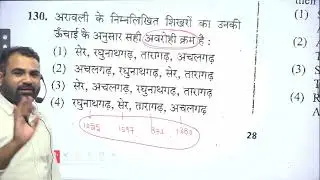 130. अरावली के निम्नलिखित शिखरों का उनकी
ऊँचाई के अनुसार सही अवरोही क्रम है :
(1) सेर, रघुनाथगढ़, तारागढ़, अचलगढ़
(2) अचलगढ़, रघुनाथगढ़, सेर, तारागढ़
(3) सेर, अचलगढ़, रघुनाथगढ़, तारागढ़
(4) रघुनाथगढ़, सेर, तारागढ़, अचलगढ़
1597
28
then
(1)
(2)
(3)
(4)